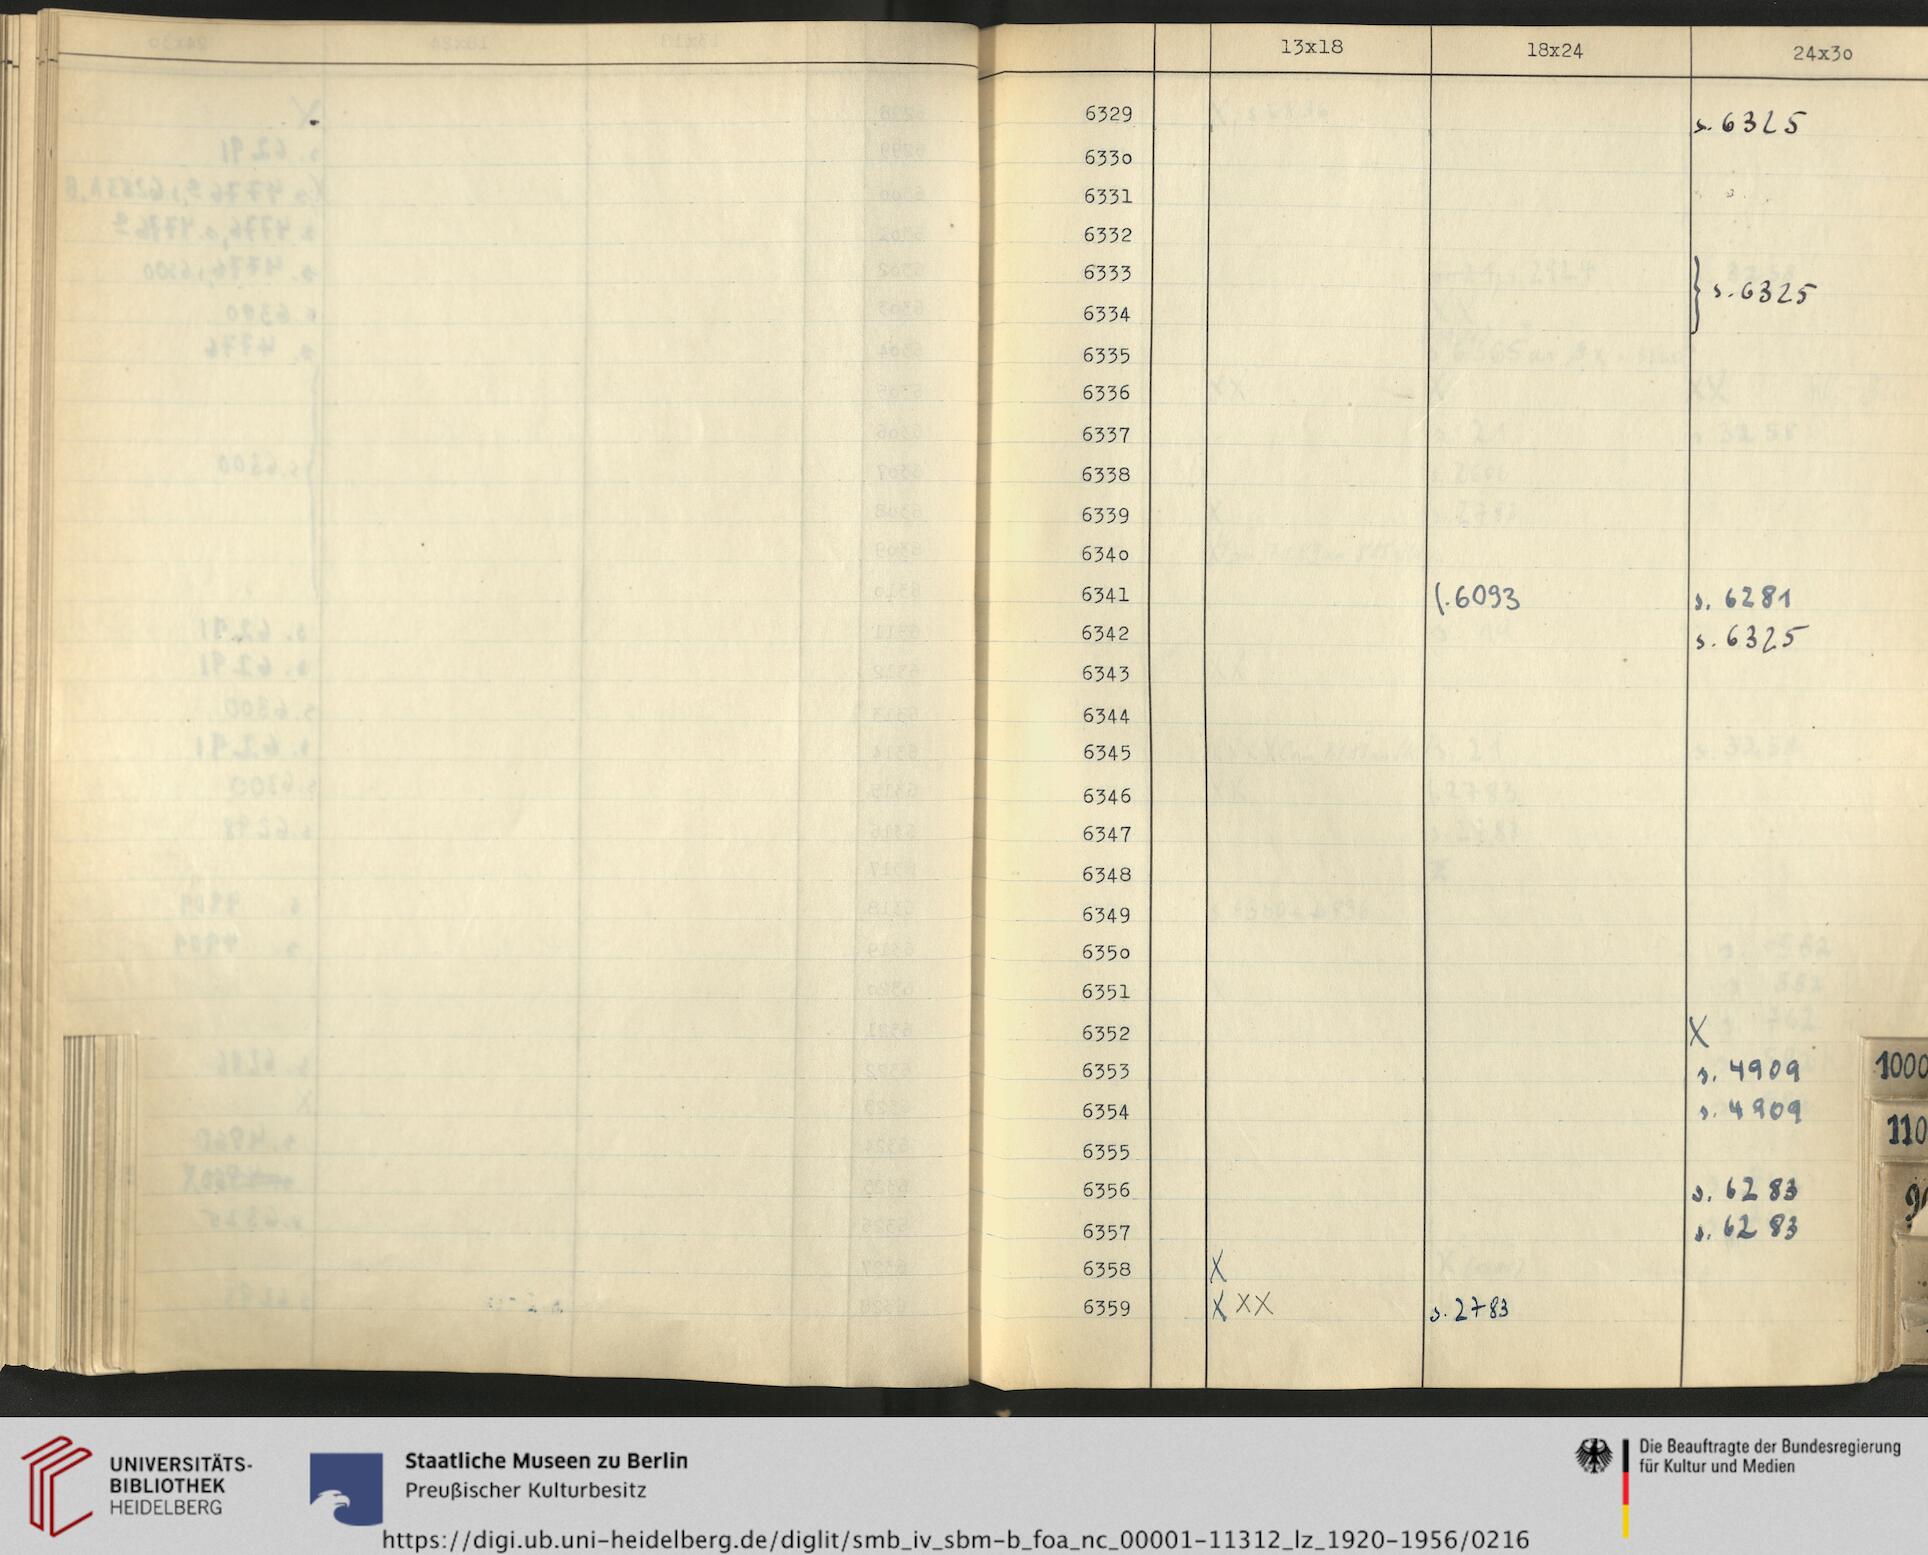 13x18 18x24 24x3o
6329 s. 6325
633o
6331
6332
6333
} s. 6325
6334
6335
6336
6337
6338
6339
634o
6341 s. 6093 s. 6281
6342 s. 6325
6343
6344
6345
6346
6347
6348
6349
635o
6351
6352 X
6353 s. 4909
6354 s. 4909
6355
6356 s. 6283
6357 s. 6283
6358 X
6359 X XX s. 2783
1000
110
UNIVERSITÄTS-
BIBLIOTHEK
HEIDELBERG
Staatliche Museen zu Berlin
Preußischer Kulturbesitz
Die Beauftragte der Bundesregierung
für Kultur und Medien
https://digi.ub.uni-heidelberg.de/diglit/smb_iv_sbm-b_foa_nc_00001-11312_lz_1920-1956/0216